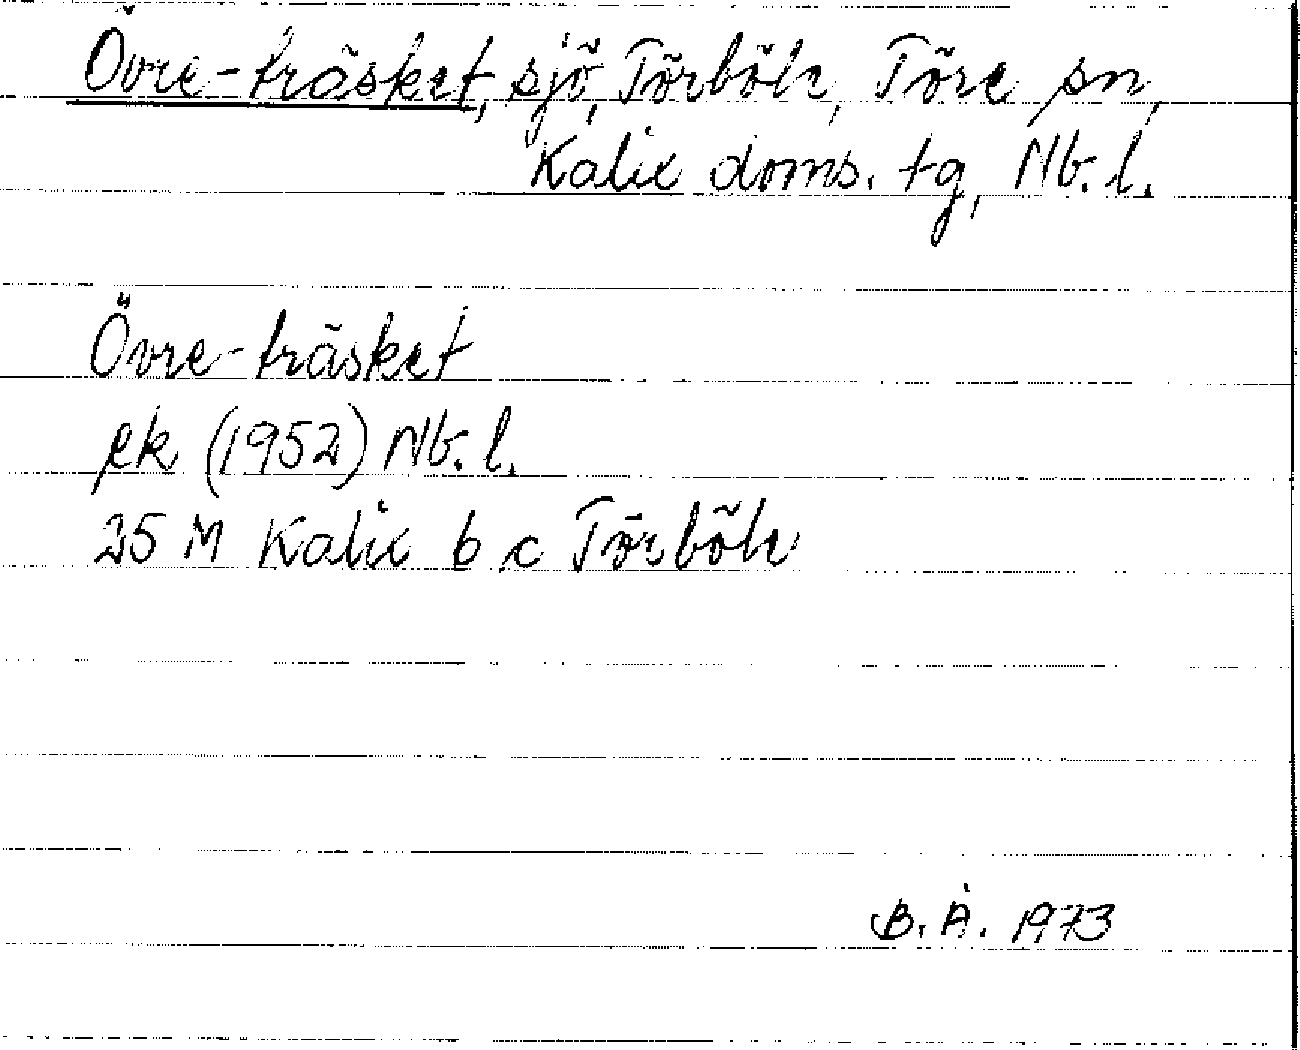 Övre-träsket, sjö, Törböle, Töre sn,
Kalix doms. tg, Nb. l.
Övre-träsket
ek (1952) Nb. l.
25 M Kalix b c Törböle
B. Å. 1973